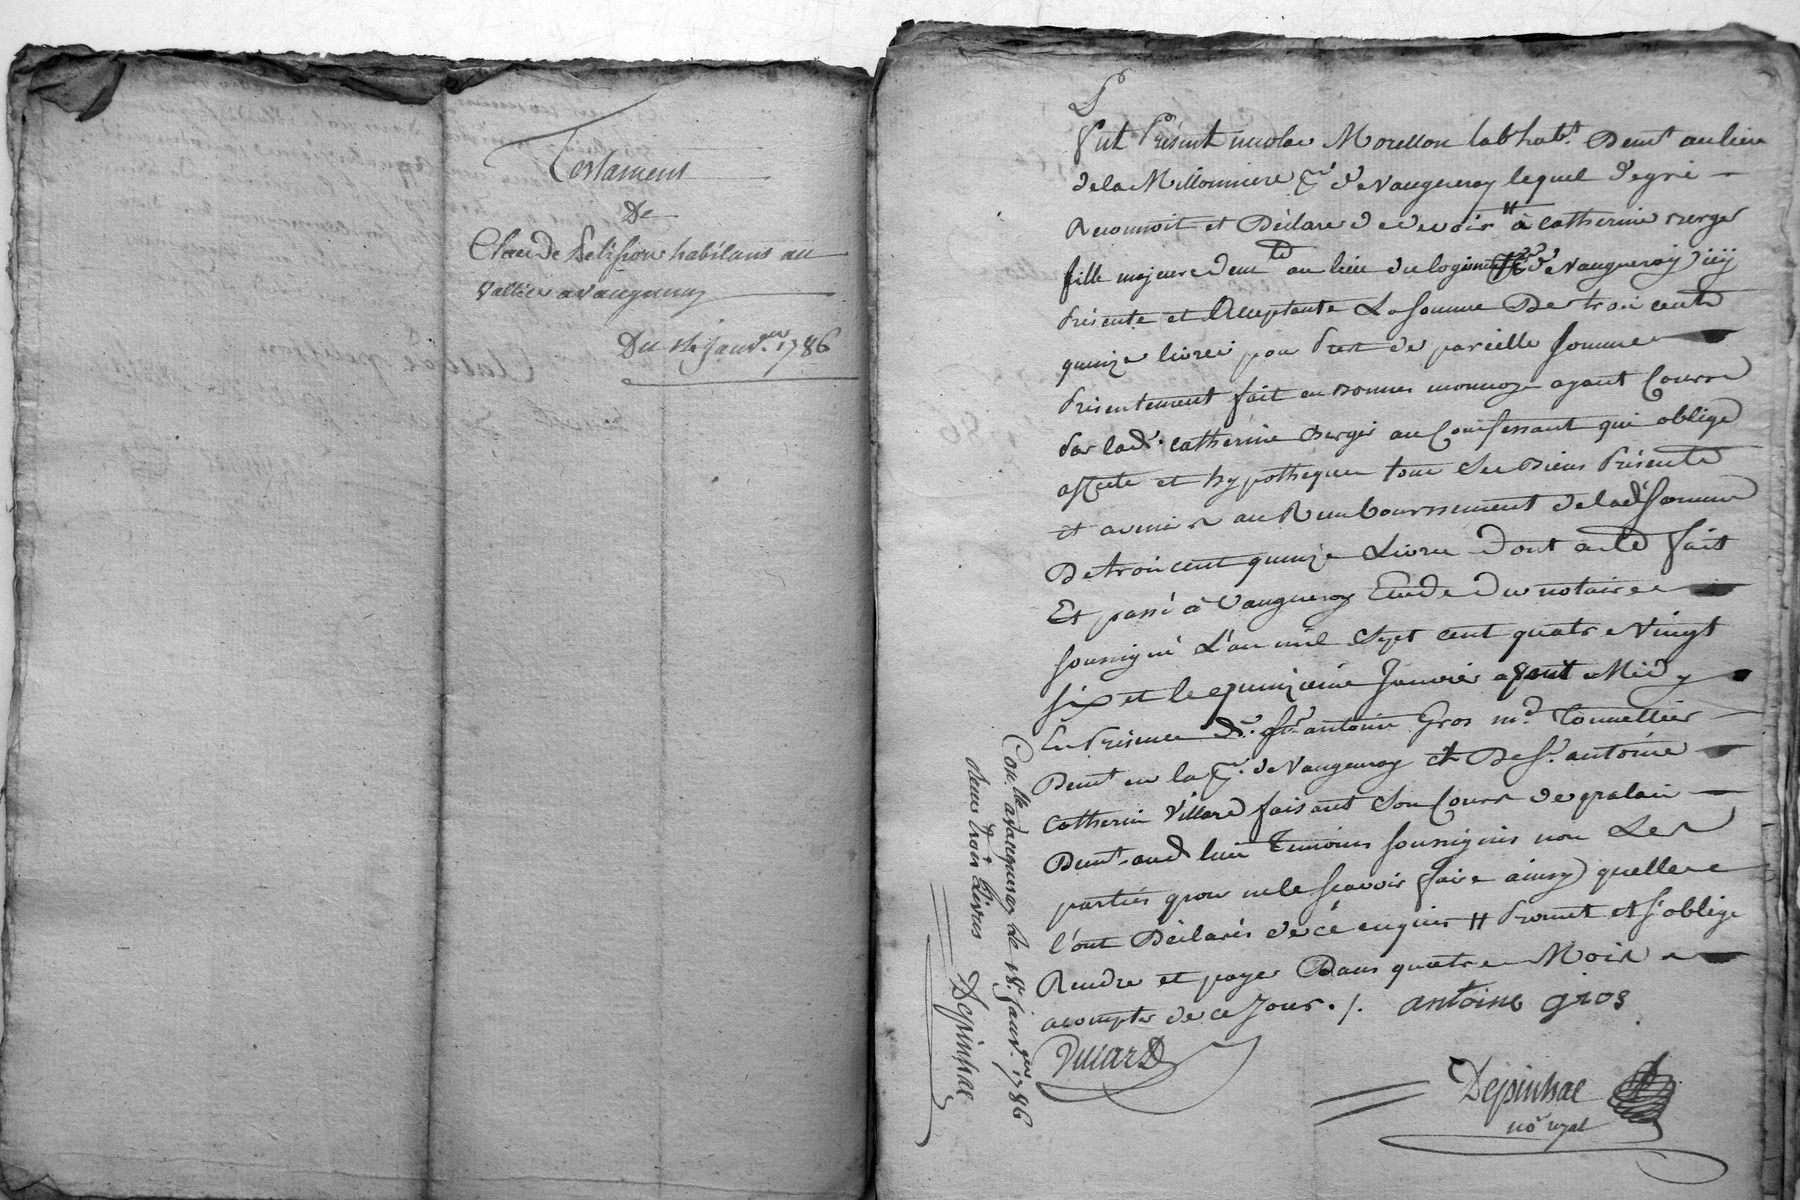 Testament
De
Claude Pelission habitans au
Vallier a Vaugneray
Du 14 janv.er 1786
Fut Présent nicolas Morellon lab habt. Demt au lieu
de la Millonniere psse de Vaugneray lequel de gré
Reconnoit et Déclare de devoir # à Catherine Berger
fille majeure demt au lieu du logement psse de Vaugneray icy
Présente et Acceptante La somme De trois cents
quinze livres pour Prest de pareille somme
Présentement fait en bonnes monnoye ayant Cours
Par lade. Catherine Berger au Confessant qui oblige
affecte et hypotheque tous Ses Biens Présents
et avenir au Remboursement de lade somme
De trois cent quinze Livres Dont acte fait
Et passé à Vaugneray Etude du notaire
soussigné L'an mil Sept cent quatre Vingt
Six et le quinzieme Janvier avant Midy
En Présence de Sr. antoine Gros md. Tonnellier
Demt en la psse. de Vaugneray et De Sr. antoine
Catherin Villard faisant Son Cours de palais
Demt. aud lieu Temoins soussignés non Les
parties pour ne le scavoir faire ainsy quelles
l'ont Déclarés de ce enquis # Promet et s'oblige
Rendre et payer Dans quatre Mois
acompter de ce Jour ./. antoine gros
Villard
Depinhac
no. royal
Con.lle a Vaugneray Le 18e janv.er 1786
Reçu trois Livres Depinhac